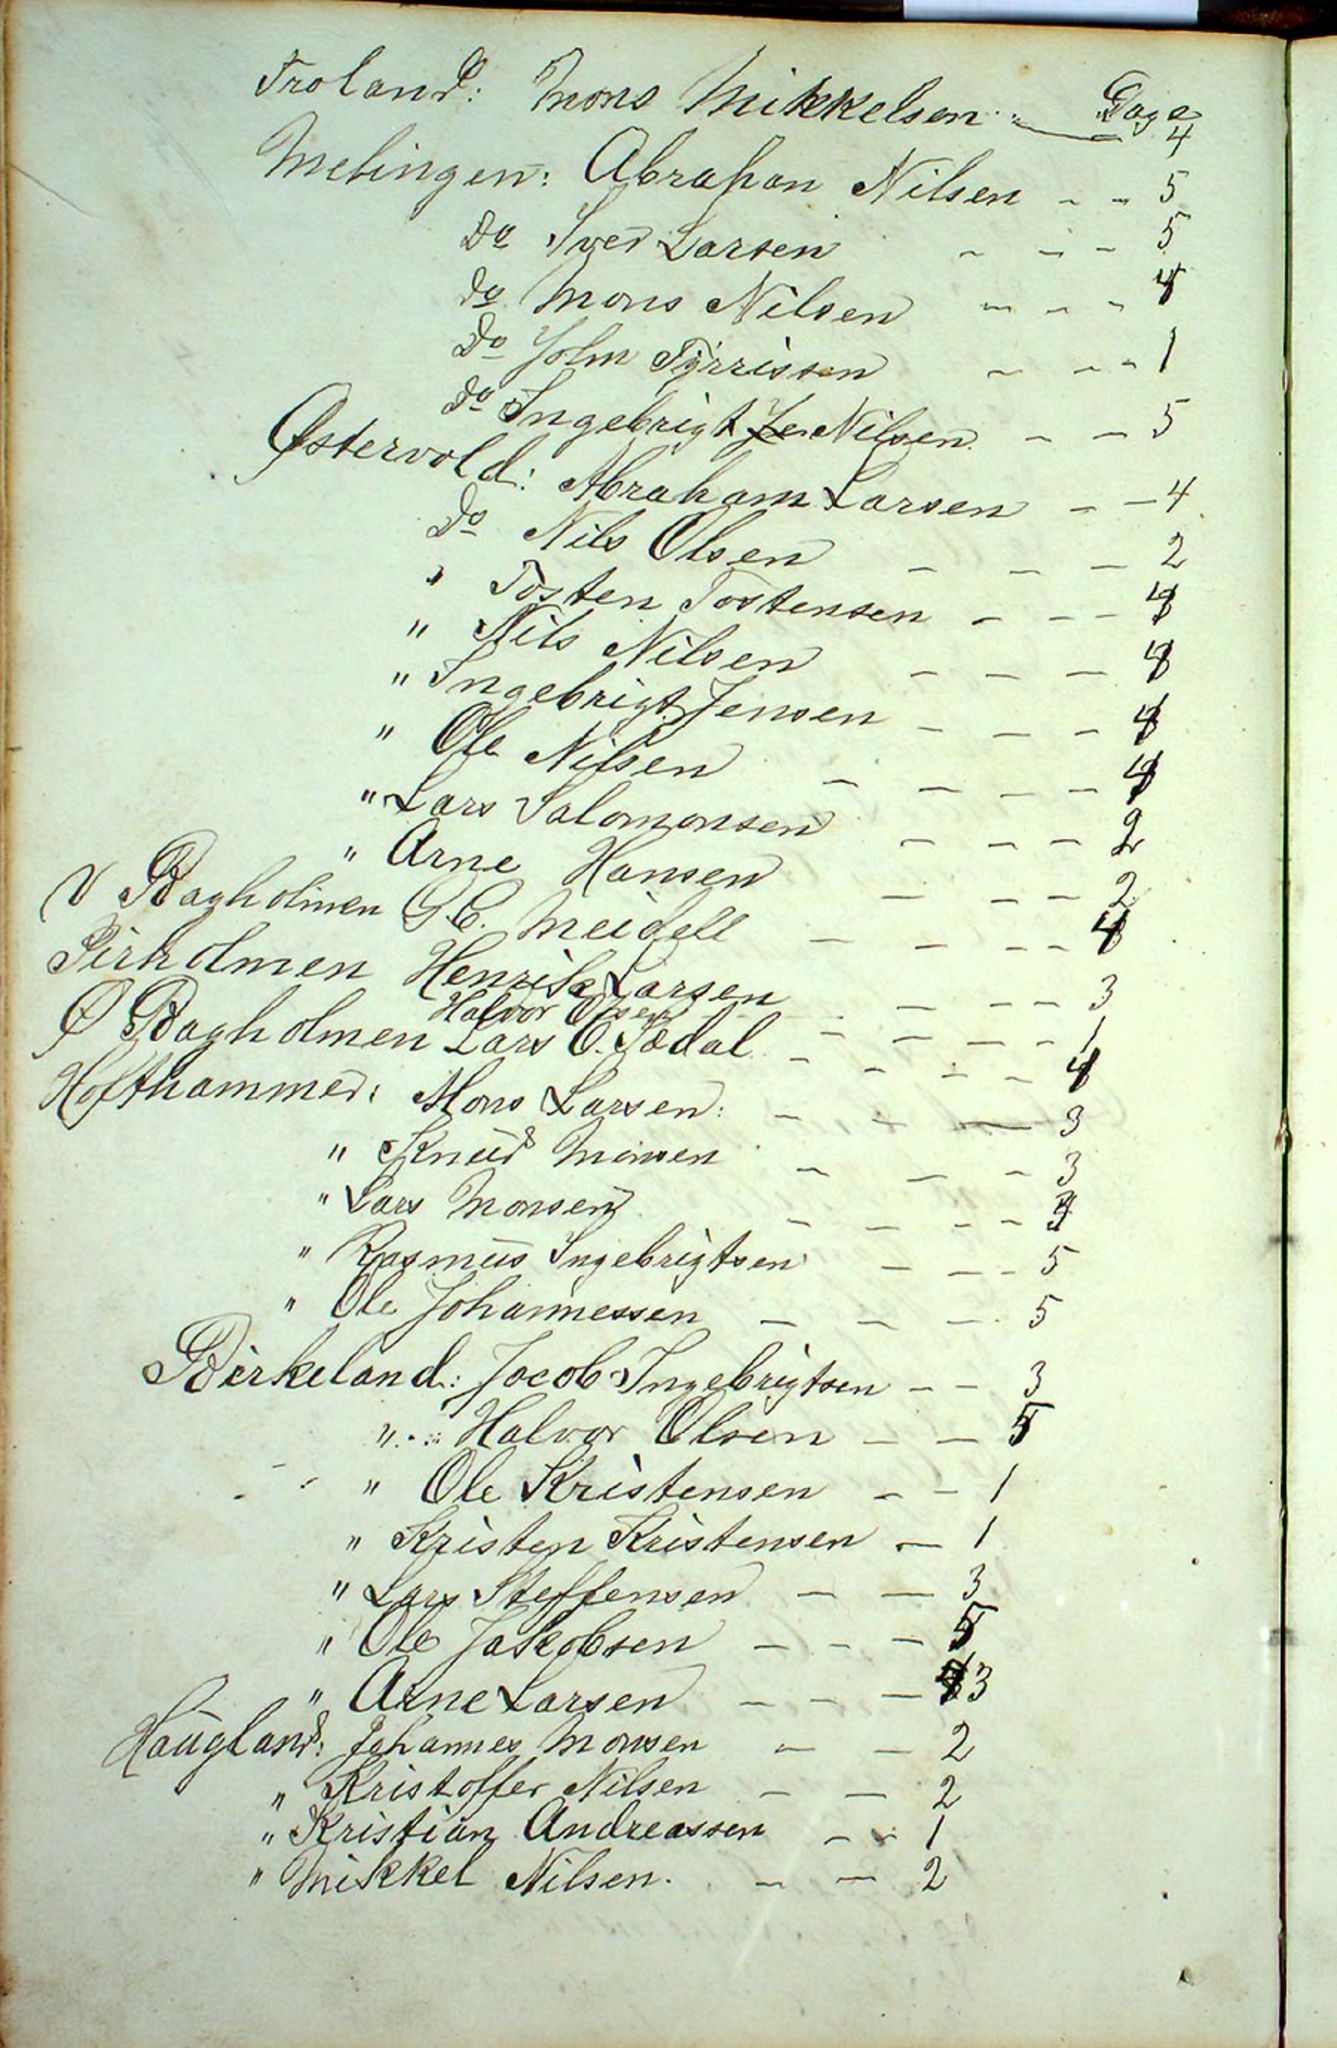 Froland: Mons Mikkelsen — Dage 4
Melingen: Abrahan Nilsen - - 5
Do Iver Larsen - - - 5
do Mons Nilsen - - - 4
Do John Tÿrrissen - - - 1
do Ingebrigt Nilsen - - 5
Østervold: Abraham Larsen - - 4
Do Nils Olsen - - - 2
" Tosten Tostensen - - - 4
" Nils Nilsen - - - - 4
" Ingebrigt Jensen - - - 4
" Ole Nilsen - - - - 4
" Lars Salomonsen - - - - 2
" Arne Hansen - - - 2
V Bagholmen G C. Meidell - - - - 4
Pirholmen Henrik Larsen - - - - 3
Halvor Olsen - - - - - 1
Ø Bagholmen Lars O. Jødal - - - - 4
Hofthammer: Mons Larsen: - - - 3
" Knud Monsen - - - 3
" Lars Monsen - - - -
" Rasmus Ingebrigtsen - - - 5
" Ole Johannessen - - - 5
Birkeland: Jacob Ingebrigtsen - - 3
" Halvor Olsen - - 5
" Ole Kristensen - - 1
" Kristen Kristensen - 1
" Lars Steffensen - - 3
" Ole Jakobsen - - - 5
" Arne Larsen - - - 3
Haugland: Johannes Monsen - - 2
" Kristoffer Nilsen - - 2
" Kristian Andreassen - - 1
" Mikkel Nilsen. - - 2